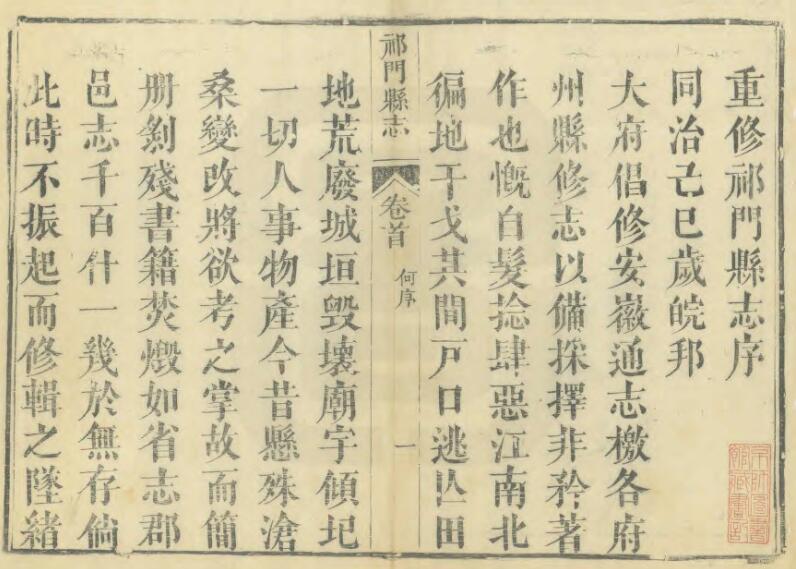 重修祁門縣志序
同治己巳歲皖邦
大府倡修安徽通志檄各府
州縣修志以備採擇非矜著
作也慨自髮捻肆惡江南北
徧地干戈其間戸口逃亾田
祁門縣志
卷首
何序
一
地荒廢城垣毀壞廟宇傾圮
一切人事物產今昔懸殊滄
桑變改將欲考之掌故而簡
册剝殘書籍焚燬如省志郡
邑志千百什一幾於無存倘
此時不振起而修輯之墜緒